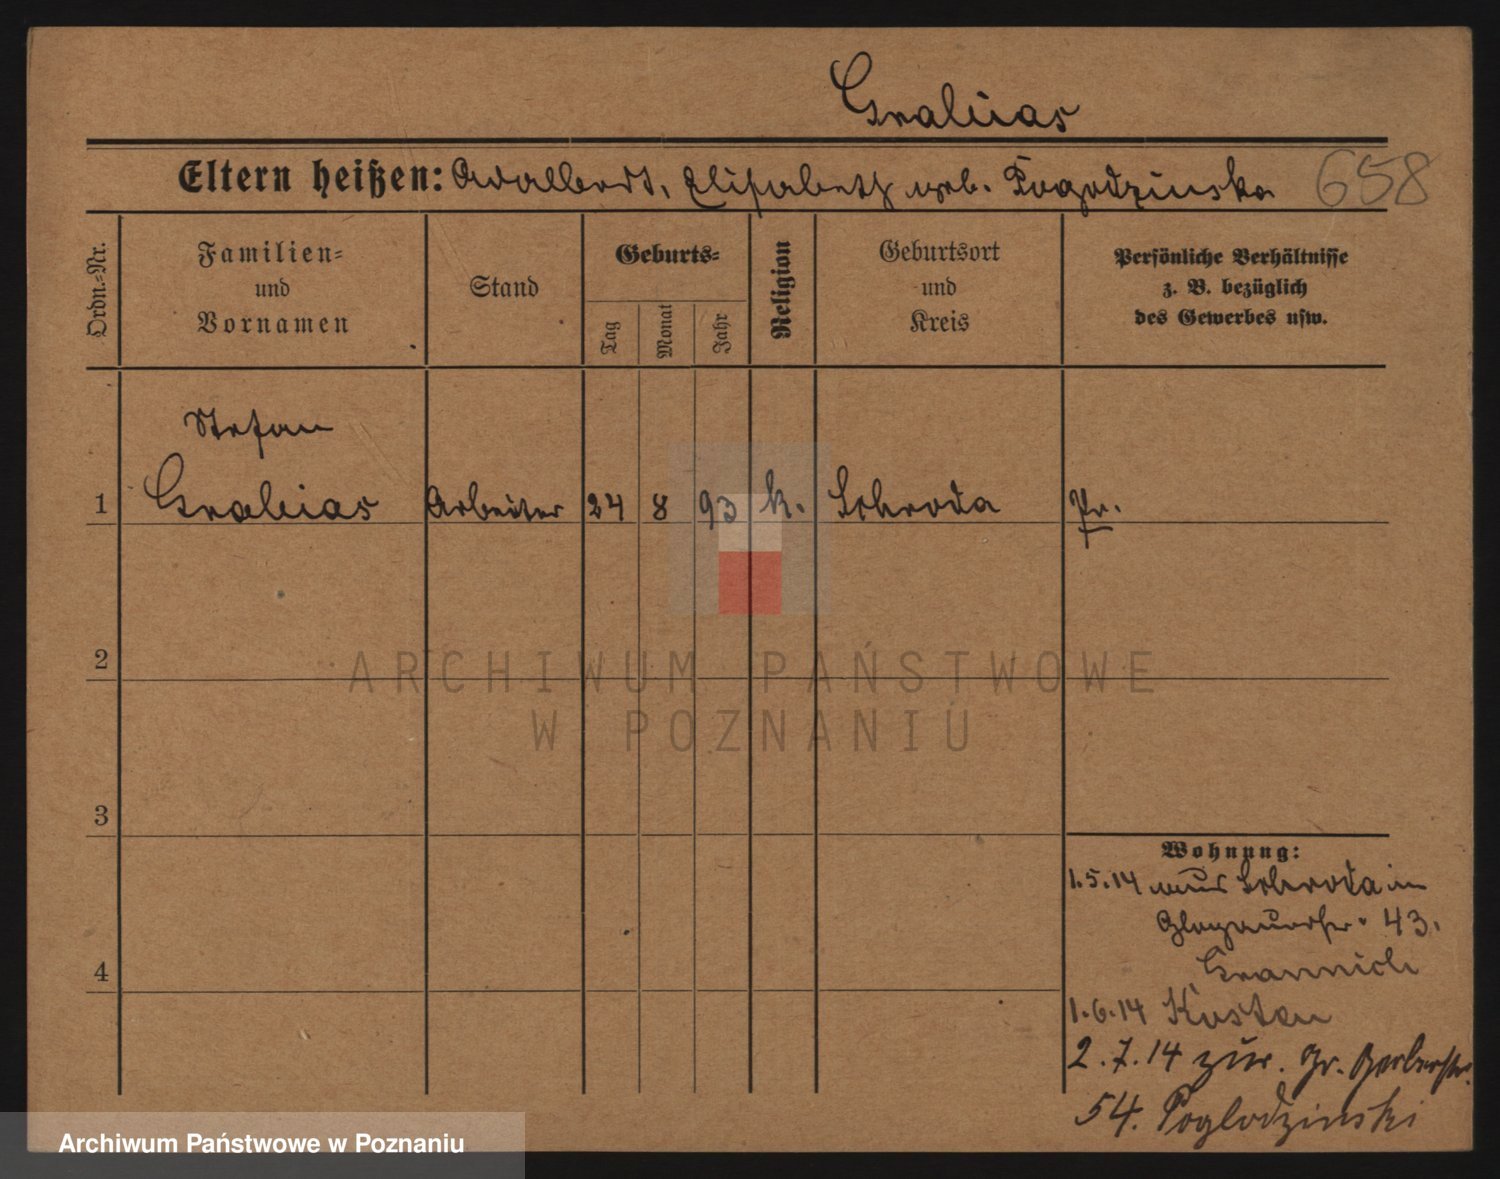 Grabias
Eltern heißen: Adalbert, Elisabeth geb. Pogodzinska
658
Ordn.-Nr.
Familien-
und
Vornamen
Stand
Geburts-
Tag
Monat
Jahr
Religion
Geburtsort
und
Kreis
Persönliche Verhältnisse
z. B. bezüglich
des Gewerbes usw.
Stefan
1 Grabias Arbeiter 24 8 93 k. Schroda Pr.
2
ARCHIWUM PAŃSTWOWE
W POZNANIU
3
Wohnung:
1.5.14 aus Schroda in
Glogauerstr. 43.
4
1.6.14 Kosten
2.7.14 zur. Gr. Gerberstr.
54. Poglodzinski
Archiwum Państwowe w Poznaniu